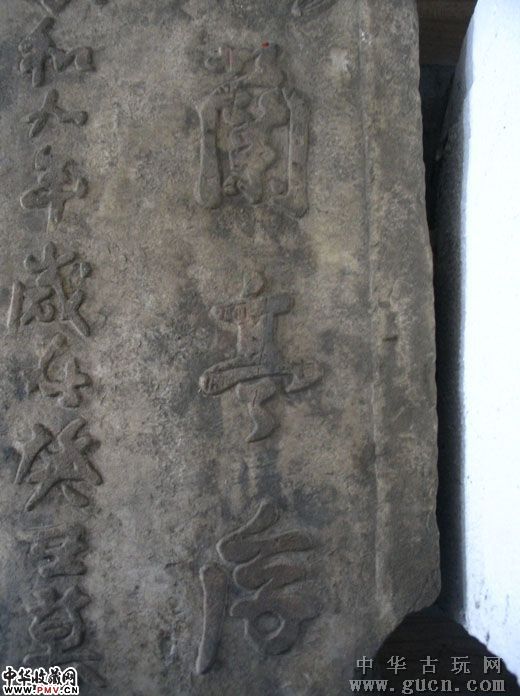 蘭亭序
和九年歲在癸丑暮
中华收藏网
www.PMV.CN
中华古玩网
www.gucn.com